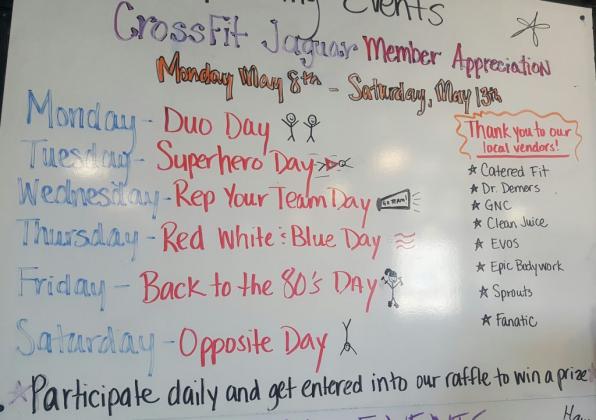 Events
CrossFit Jaguar Member Appreciation
Monday May 8th - Saturday, May 13th
Monday - Duo Day
Tuesday - Superhero Day
Wednesday - Rep Your Team Day
GO TEAM!
Thursday - Red White & Blue Day
Friday - Back to the 80's DAY
Saturday - Opposite Day
Thank you to our
local vendors!
★ Catered Fit
★ Dr. Demers
★ GNC
★ Clean Juice
★ EVOS
★ Epic Bodywork
★ Sprouts
★ Fanatic
★ Participate daily and get entered into our raffle to win a prize ★